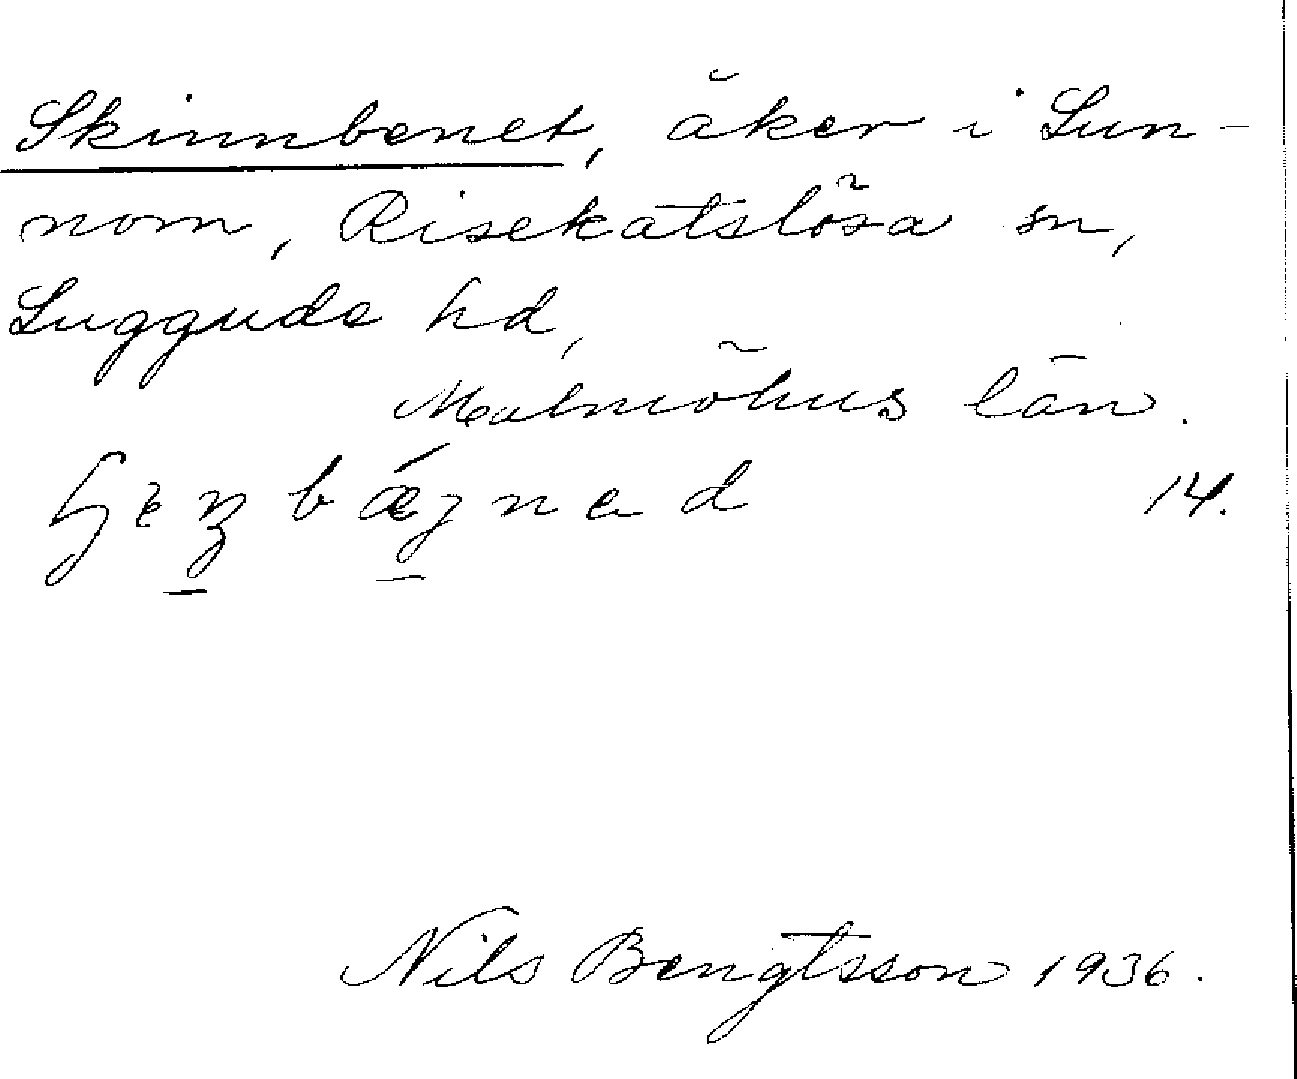 Skinnbenet, åker i Lun-
nom, Risekatslösa sn,
Luggude hd,
Malmöhus län.
14.
Nils Bengtsson 1936.